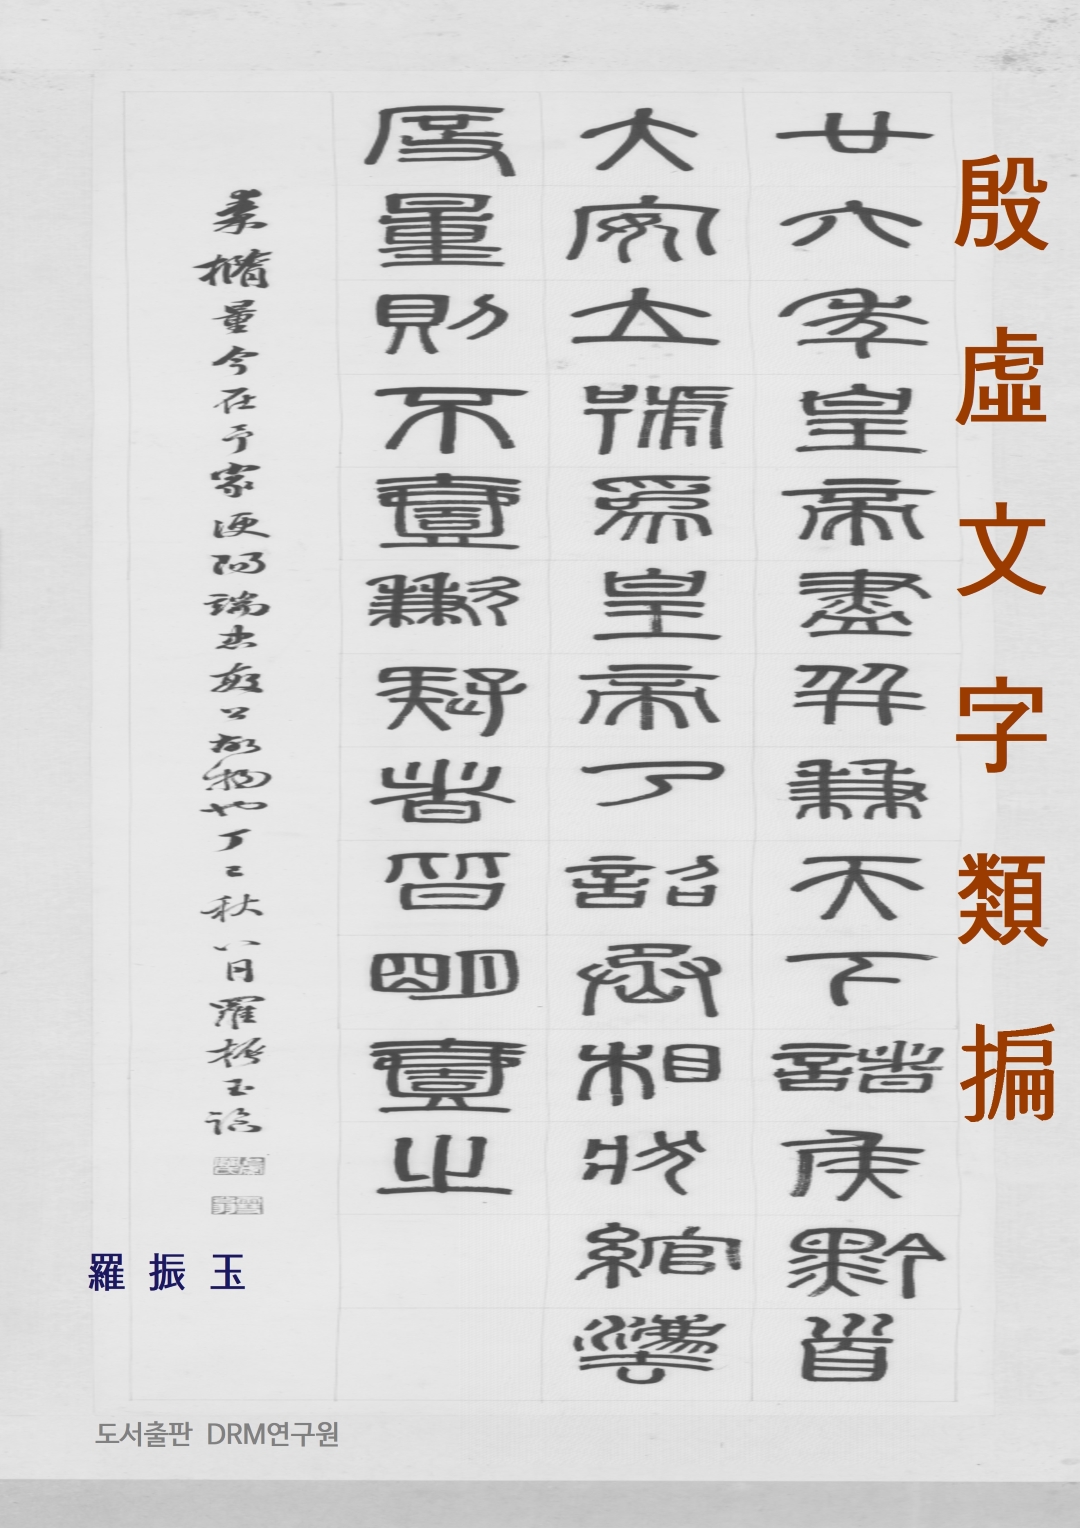 殷虛文字類揙
廿六年皇帝盡并兼天下諸侯黔首
大安立號為皇帝乃詔丞相狀綰灋
度量則不壹歉疑者皆明壹之
秦橢量今在予家浭陽端忠敏公故物也丁巳秋八月羅振玉臨
羅振玉
도서출판 DRM연구원